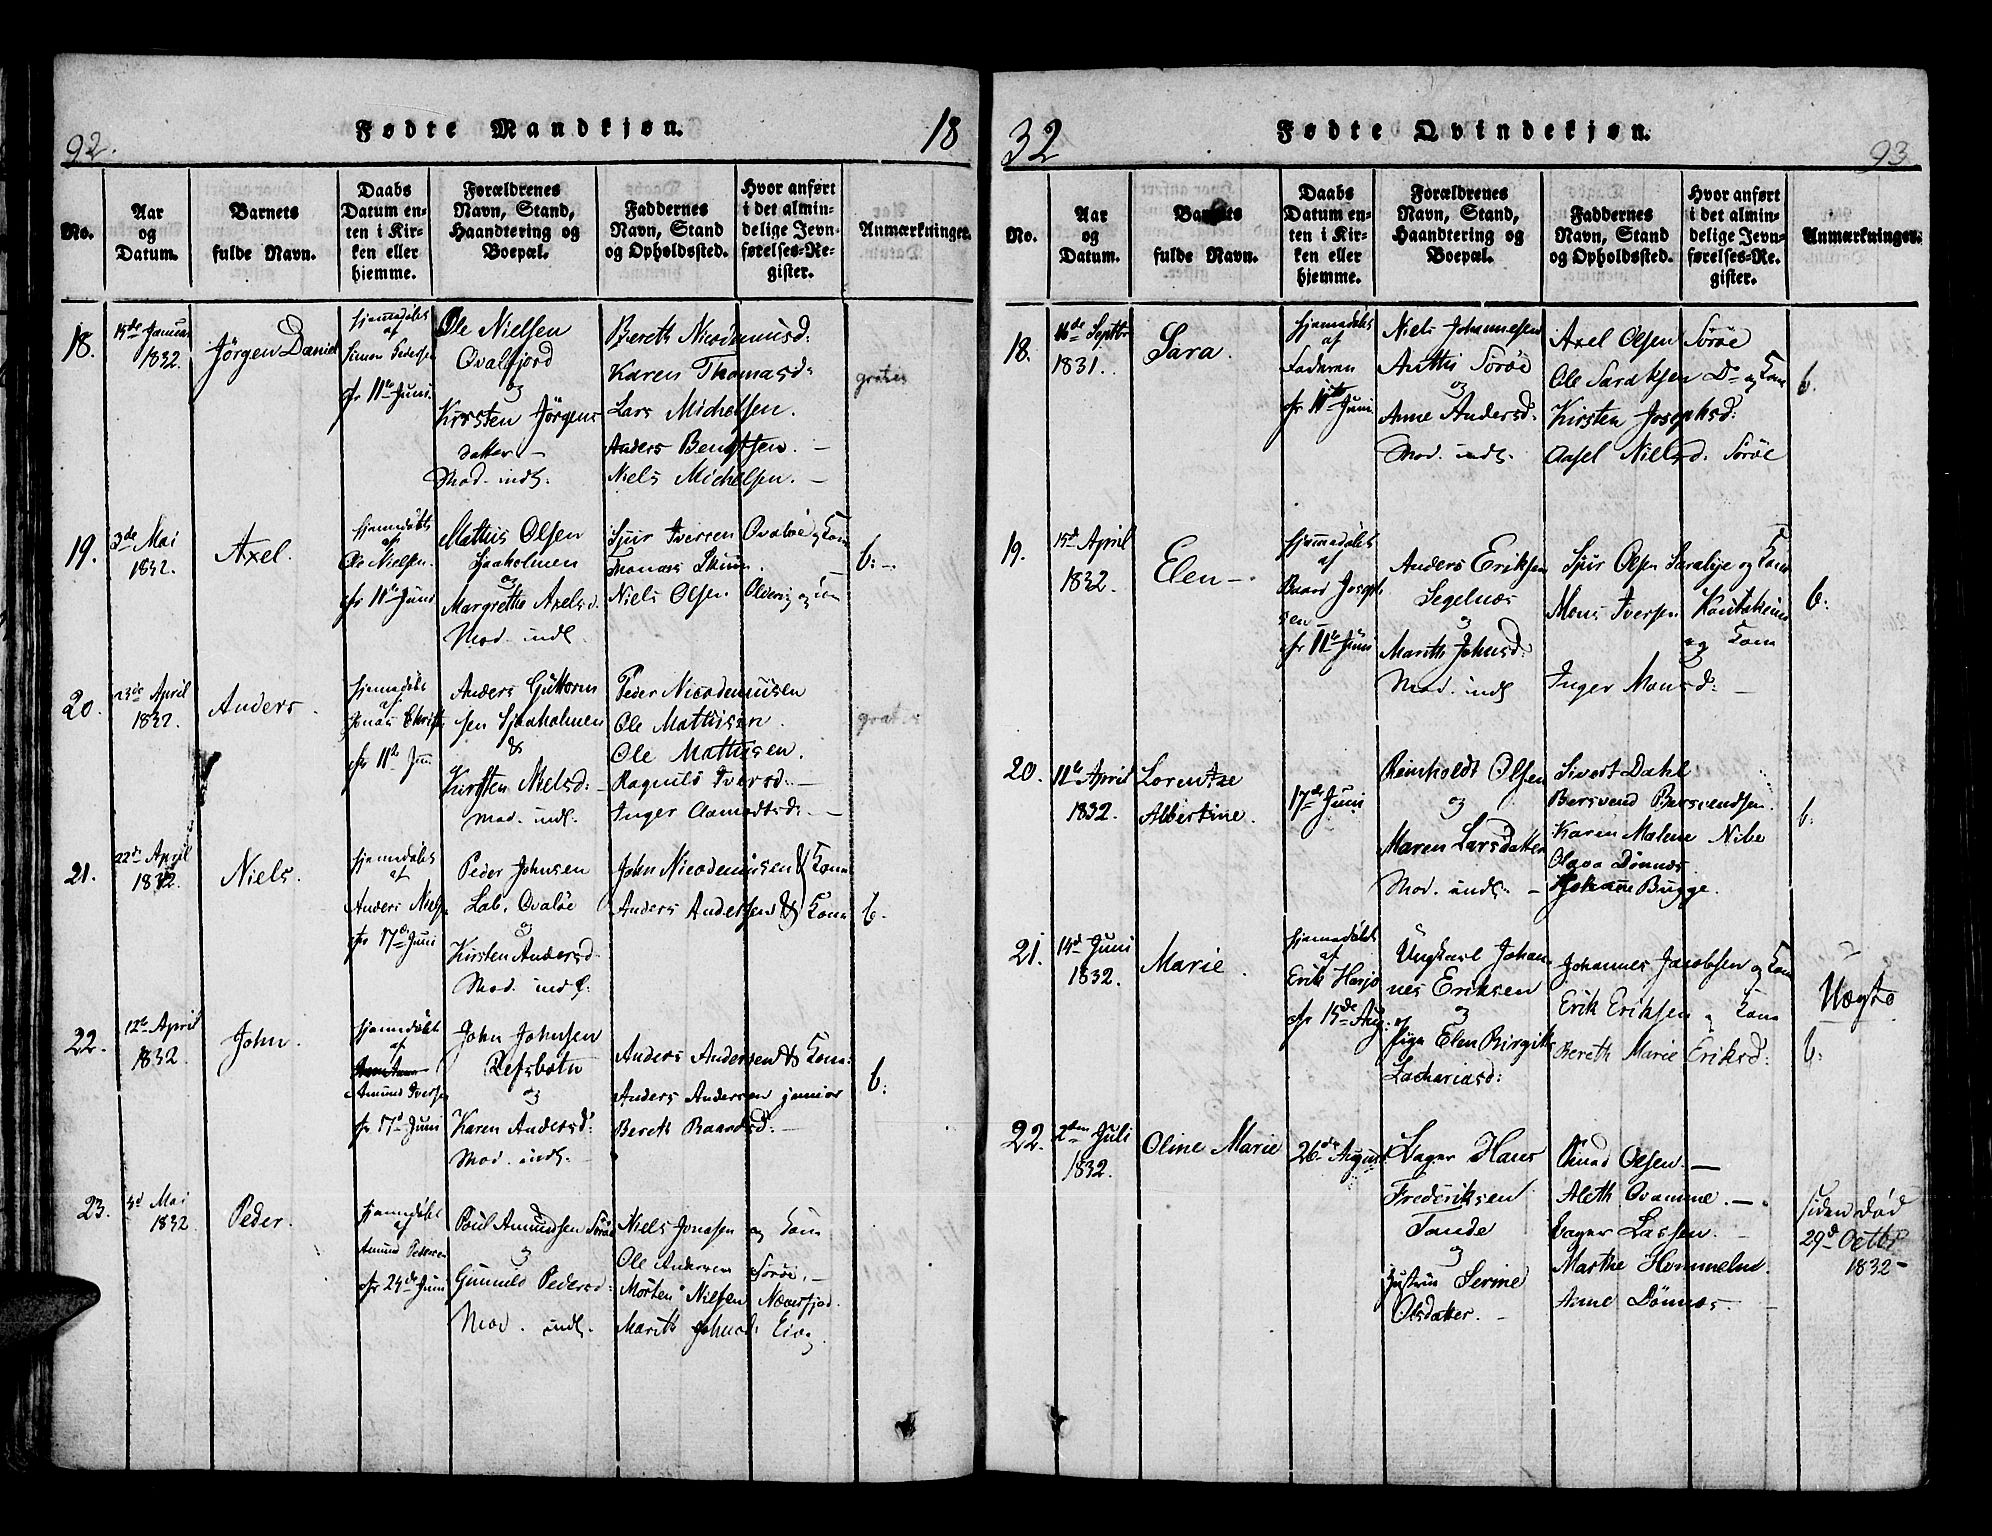 92.
Fødte Mandkjøn.
18
No.
Aar
og
Datum.
Barnets
fulde Navn.
Daabs
Datum en-
ten i Kir-
ken eller
hjemme.
Forældrenes
Navn, Stand,
Haandtering og
Boepæl.
Faddernes
Navn, Stand
og Opholdssted.
Hvor anført
i det almin-
delige Jevn-
førelses-Re-
gister.
Anmærkninger.
18.
15de Januar
1832.
Jörgen Daniel
hjemmedöbt
af
Simon Pedersen
cfr 11te Juni.
Ole Nielsen
Qvalfjord
og
Kirsten Jörgens
datter –
Mod. indl.
Bereth Nicodemusd:
Karen Thomasd:
Lars Michelsen.
Anders Bengtsen. –
Niels Michelsen. –
gratis
19.
3de Mai
1832.
Axel.
hjemmedöbt
af
Ole Nielsen.
cfr 11te Juni
Mathis Olsen
Sjaaholmen
og
Margrethe Axelsd.
Mod. indl.
Sjur Iversen Qvaløe og Kone
Thomas
Niels Olsen
b. –
20.
23de April
1832.
Anders.
hjemmedöbt
af
Jonas Christ
cfr 11te Juni
Anders Guttorm
sen Sjaaholmen
&
Kirsten Nielsd: –
Mod. indl.
Peder Nicodemusen
Ole Mathisen.
Ole Mathisen.
Ragnild Iversd: –
Inger Aamodtsd: –
grat.
21.
22de April
1832.
Niels.
hjemmedöbt
af
Anders Niels
cfr 17de Juni
Peder Johnsen
Lab, Qvaløe
og
Kirsten Andersd.
Mod. indl.
John Nicodemusen & Kone
Anders Andersen & Kone
b.
22.
12te April
1832.
John.
hjemmedöbt
af
Amund Iversen
cfr 17d Juni
John Johnsen
Refsbotn
og
Karen Andersd:
Mod. indl.
Anders Andersen & Kone
Anders Andersen junior
Bereth Baardsd: –
b.
23.
3d Mai
1832.
Peder.
hjemmedöbt
af
Amund Pedersen
cfr 24de Juni
Poul Amundsen Sörøe
og
Gunneld Pedersd:
Mod. indl.
Niels Jonasen og Kone
Ole Andersen Sorøe. –
Morten Nielsen Næverfjord.
Marith Johnsd:
32
Fødte Qvindekjøn.
93
No.
Aar
og
Datum.
Barnets
fulde Navn.
Daabs
Datum en-
ten i Kir-
ken eller
hjemme.
Forældrenes
Navn, Stand,
Haandtering og
Boepæl.
Faddernes
Navn, Stand
og Opholdssted.
Hvor anført
i det almin-
delige Jevn-
førelses-Re-
gister.
Anmærkninger.
18.
16de Septbr
1831.
Sara.
hjemmedöbt
af
Faderen
cfr 11te Juni
Niels Johannesen
Sörøe
og
Anne Andersd.
Mod. indl.
Axel Olsen Sörøe
Ole Saraksen Do og Kone
Kirsten Josephsd:
Aasel Nielsd: Sorøe
b.
19.
15d April
1832.
Elen –
hjemmedöbt
af
Baard Joseph
sen –
cfr 11te Juni
Anders Eriksen
Segelnæs
og
Marith Johnsd:
Mod. indl
Sjur Olsen og Kone
Mons Iversen Koutokeino
og Kone
Inger Monsd: –
b:
20.
11te April
1832.
Lorentze
Albertine.
17de Juni
Reinholdt Olsen
og
Maren Larsdatter
Mod. indl: –
Sivert Dahl
Bersvend Bersvendsen.
Karen Malene Nibe
Olava Dönnæs
Johanne Bugge.
b.
21.
14d Juni
1832.
Marie.
hjemmedöbt
af
Erik Harjo
cfr 15de Aug.
Ungkarl Johan
nes Eriksen
og
Pige Elen Birgitte
Zachariasd:
Johannes Jacobsen og Kone
Erik Eriksen og Kone
Bereth Marie Eriksd:
Uægte
b.
22.
2den Juli
1832.
Oline Marie
26de August
Bager Hans
Frederiksen
Tande
og
Hustru Serine
Olsdatter. –
Knud Olsen. –
Aleth Qvamme. –
Bager Lassen. –
Marthe Hommelnd.
Anne Dönnæs. –
siden död
29d Octbr
1832 –